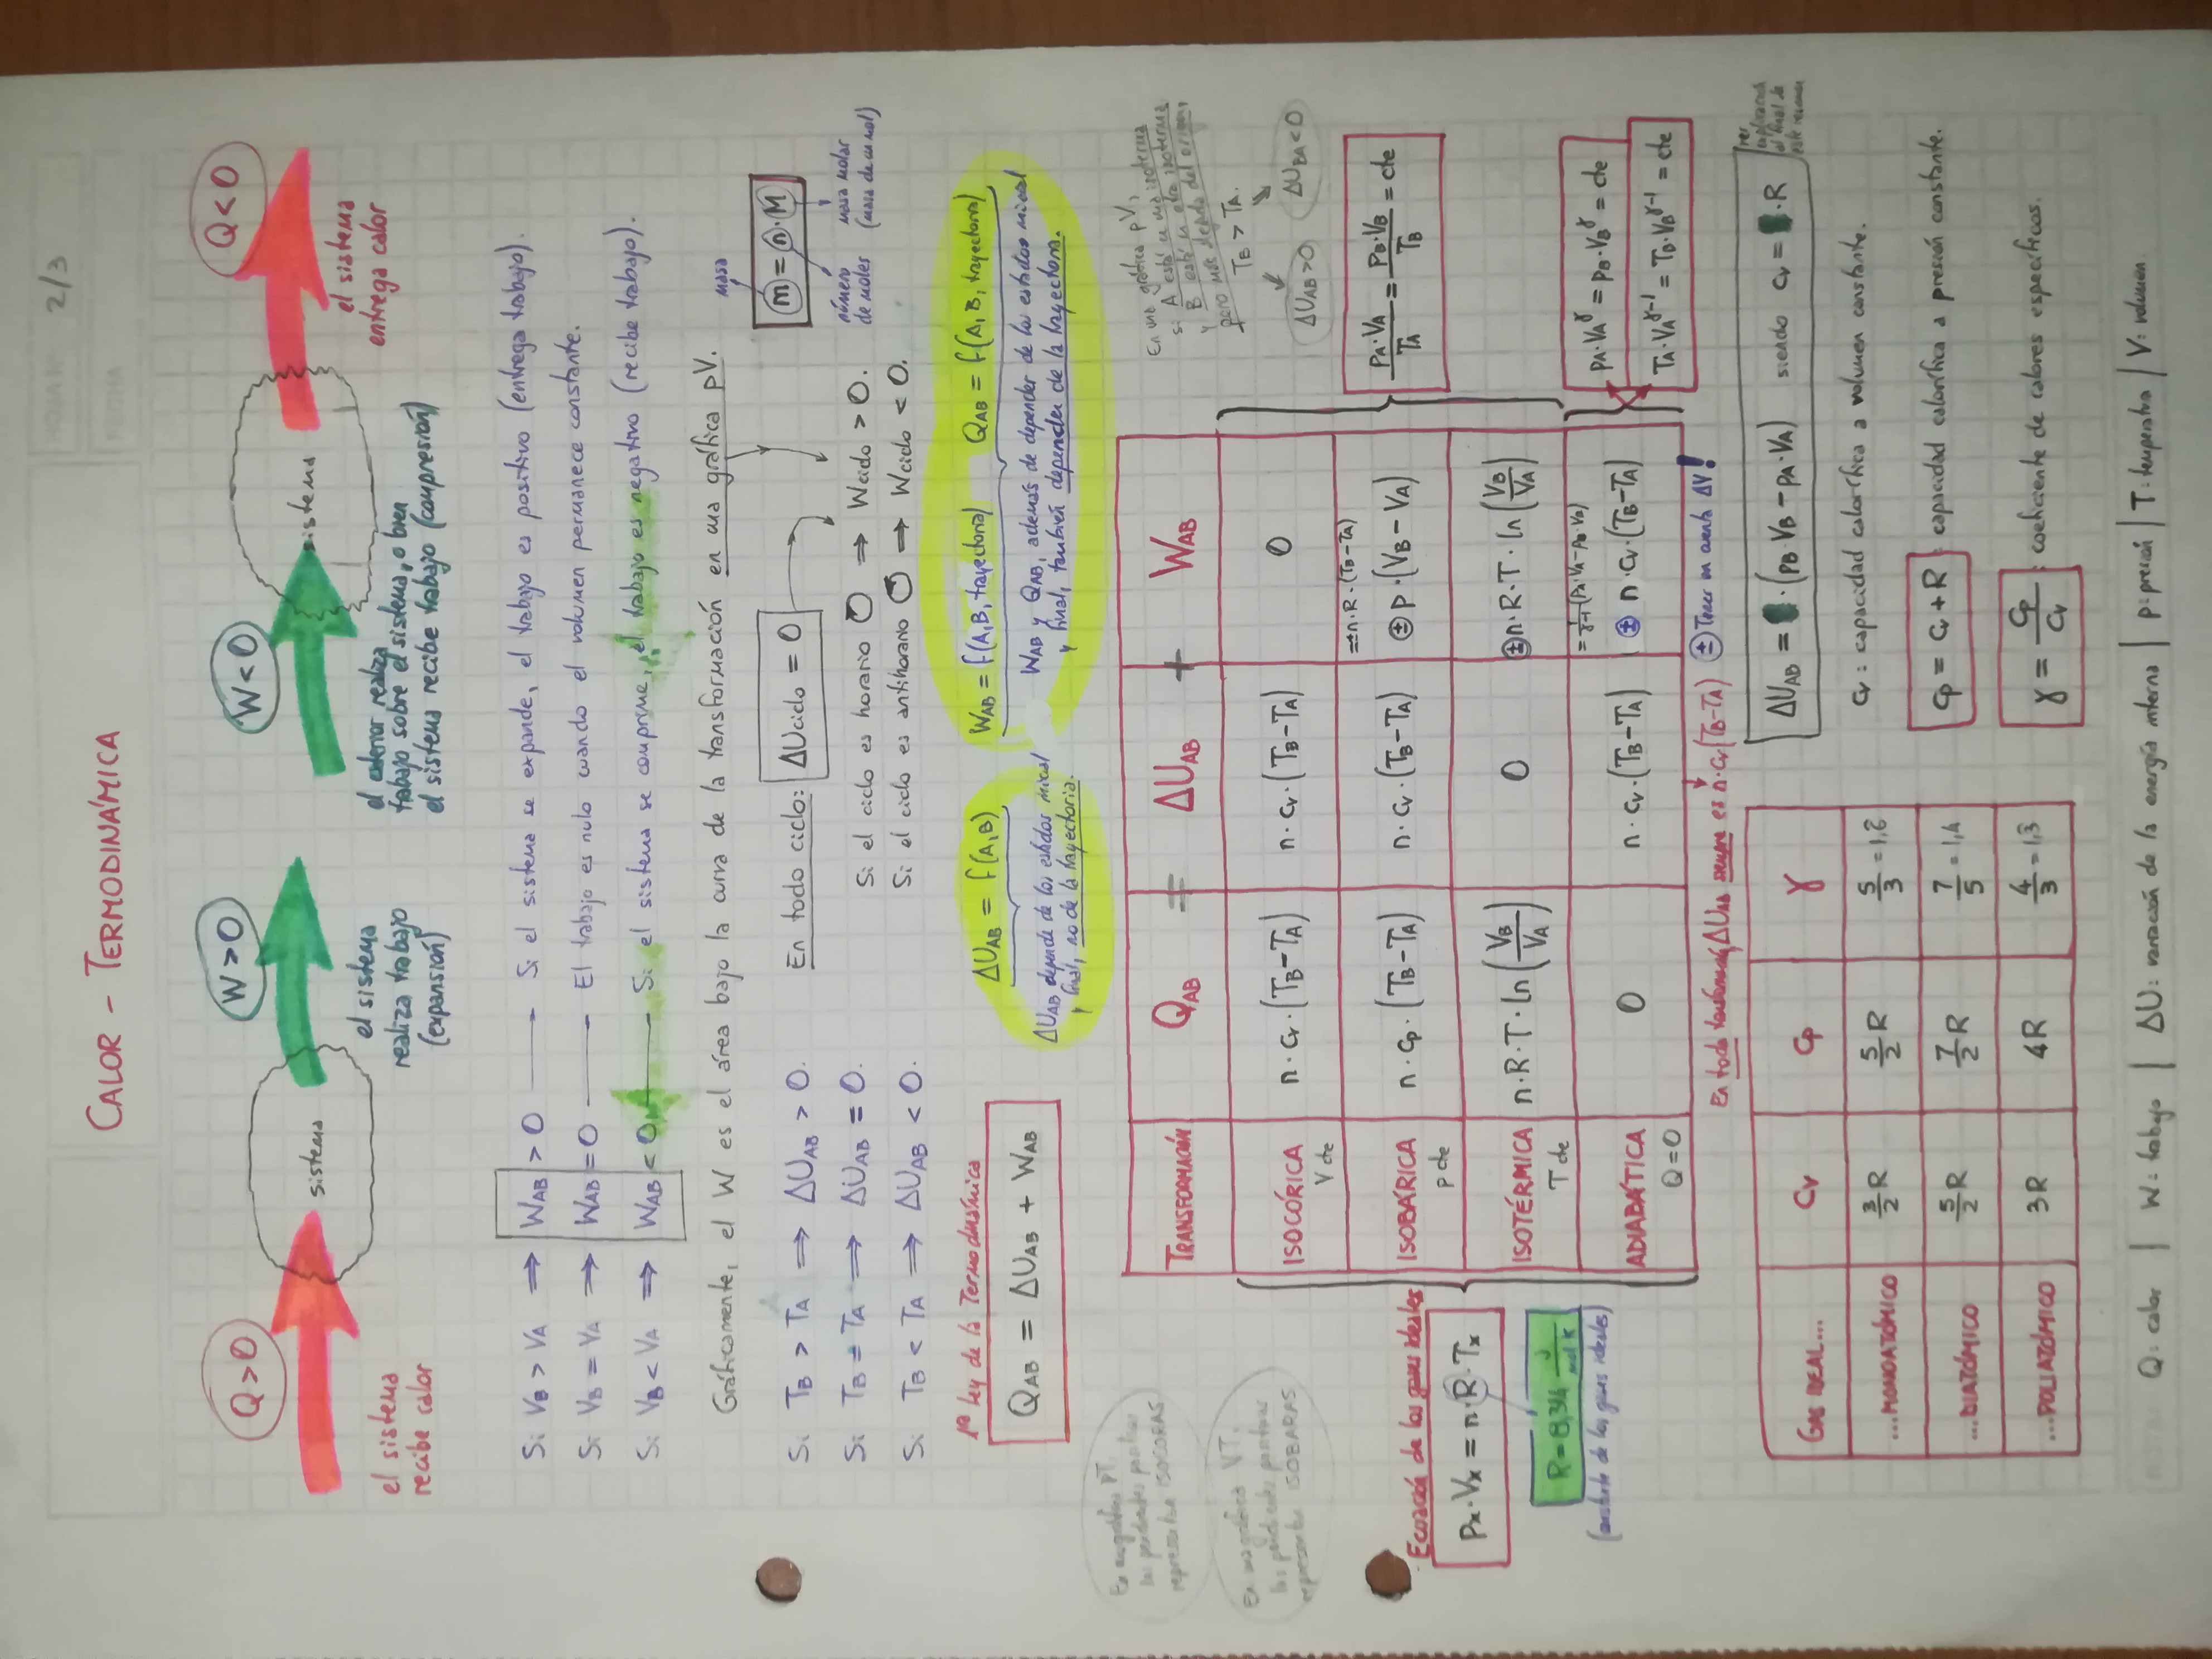 2/3
CALOR – TERMODINÁMICA
Q>0
W>0
W<0
Q<0
sistema
sistema
el sistema
recibe calor
el sistema
realiza trabajo
(expansión)
el exterior realiza
trabajo sobre el sistema, o bien
el sistema recibe trabajo (compresión)
el sistema
entrega calor
Si VB > VA ⇒ WAB > 0 —— Si el sistema se expande, el trabajo es positivo (entrega trabajo).
Si VB = VA ⇒ WAB = 0 —— El trabajo es nulo cuando el volumen permanece constante.
Si VB < VA ⇒ WAB < 0 —— Si el sistema se comprime, el trabajo es negativo (recibe trabajo).
Gráficamente, el W es el área bajo la curva de la transformación en una gráfica pV.
Si TB > TA ⇒ ΔUAB > 0.
Si TB = TA ⇒ ΔUAB = 0.
Si TB < TA ⇒ ΔUAB < 0.
En todo ciclo: ΔUciclo = 0
Si el ciclo es horario ⇒ Wciclo > 0.
Si el ciclo es antihorario ⇒ Wciclo < 0.
masa
m = n · M
número
de moles
masa molar
(masa de un mol)
1ª Ley de la Termodinámica
QAB = ΔUAB + WAB
ΔUAB = f(A,B)
ΔUAB depende de los estados inicial
y final, no de la trayectoria.
WAB = f(A,B, trayectoria) QAB = f(A, B, trayectoria)
WAB y QAB, además de depender de los estados inicial
y final, también dependen de la trayectoria.
En una gráfica PT,
las pendientes positivas
representan ISOCORAS
En una gráfica VT,
las pendientes positivas
representan ISOBARAS
TRANSFORMACIÓN QAB = ΔUAB + WAB
ISOCÓRICA n · cv · (TB−TA) n · cv · (TB−TA) 0
V cte
= ± n · R · (TB−TA)
ISOBÁRICA n · cp · (TB−TA) n · cv · (TB−TA) ± p · (VB − VA)
p cte
ISOTÉRMICA n · R · T · ln (VB/VA) 0 ± n · R · T · ln (VB/VA)
T cte
= 1/γ−1 (pA · VA − pB · VB)
ADIABÁTICA 0 n · cv · (TB−TA) ± n · cv · (TB−TA)
Q=0
En una gráfica pV,
si A está en una isoterma
y B está en otra isoterma
pero más alejada del origen,
TB > TA.
ΔUAB>0
ΔUBA<0
pA · VA / TA = pB · VB / TB = cte
pA · VA^γ = pB · VB^γ = cte
TA · VA^γ−1 = TB · VB^γ−1 = cte
Ecuación de los gases ideales
px · Vx = n · R · Tx
R = 8,314 J / mol·K
(constante de los gases ideales)
En toda transformación, ΔUAB siempre es n · cv (TB−TA)
± Tener en cuenta ΔV!
GAS IDEAL... cv cp γ
...MONOATÓMICO 3/2 R 5/2 R 5/3 = 1,6
...DIATÓMICO 5/2 R 7/2 R 7/5 = 1,4
...POLIATÓMICO 3R 4R 4/3 = 1,3
ΔUAB = · (pB · VB − pA · VA) siendo cv = · R
ver
explicación
al final de
este resumen
cv : capacidad calorífica a volumen constante.
cp = cv + R : capacidad calorífica a presión constante.
γ = cp/cv : coeficiente de calores específicos.
Q: calor | W: trabajo | ΔU: variación de la energía interna | p: presión | T: temperatura | V: volumen.